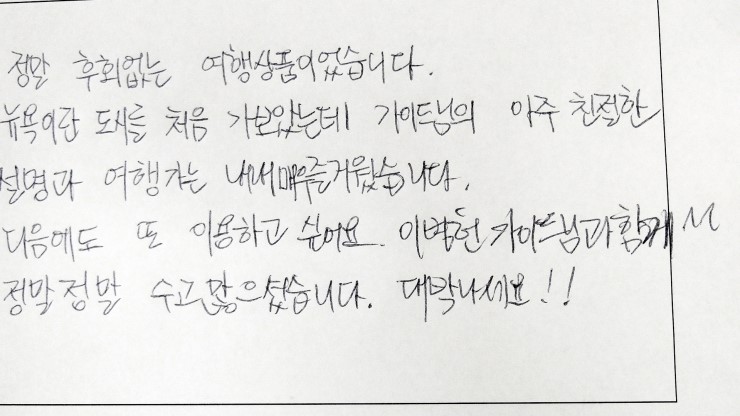 정말 후회없는 여행상품이었습니다.
뉴욕이란 도시를 처음 가보았는데 가이드님의 아주 친절한
설명과 여행가는 내내 매우 즐거웠습니다.
다음에도 또 이용하고 싶어요. 이범헌 가이드님과 함께
정말정말 수고많으셨습니다. 대박나세요!!